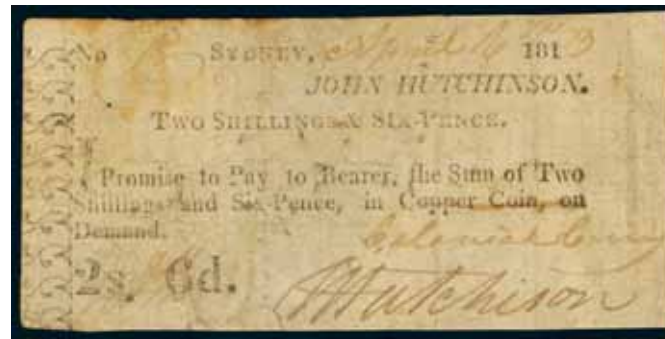 No SYDNEY, April 6 1813
JOHN HUTCHINSON.
TWO SHILLINGS & SIX-PENCE.
I Promise to Pay to Bearer, the Sum of Two
Shillings and Six-Pence, in Copper Coin, on
Demand. Colonial Curry
2s. 6d.
JHutchison